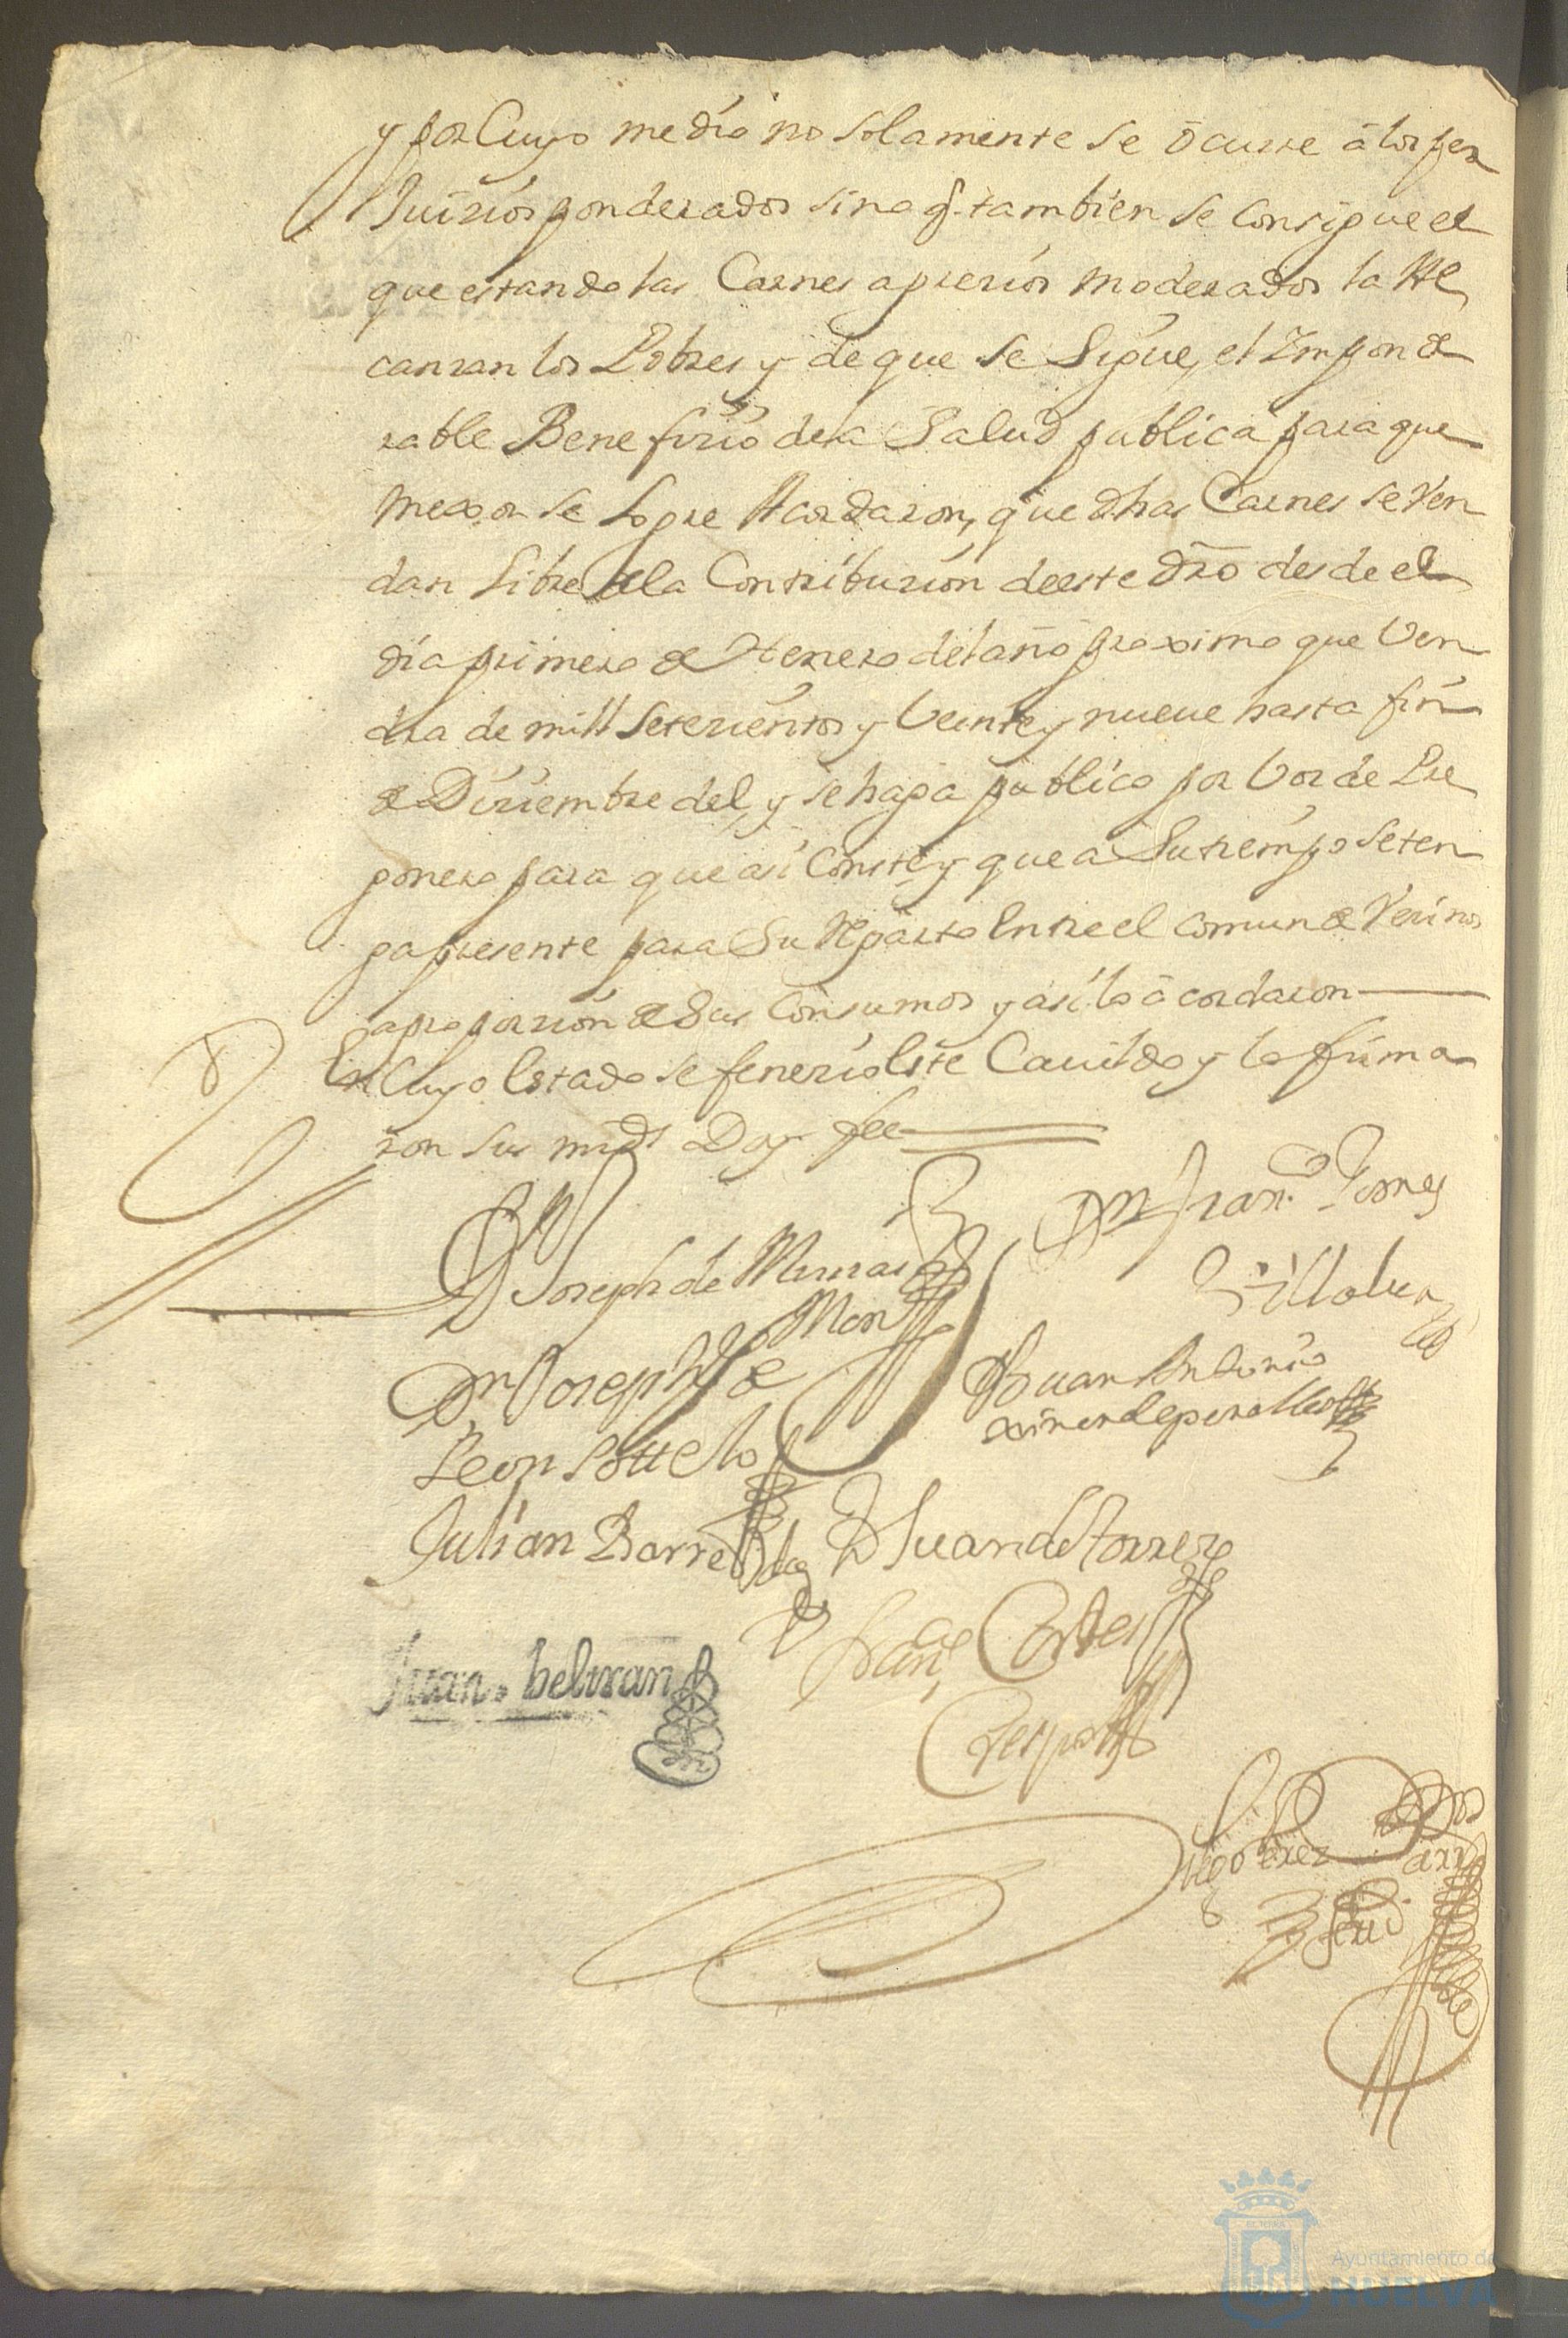 y por Cuyo medio no solamente se ocurre a los per
Juizios ponderados sino q. tambien se Consigue el
que estando las Carnes a prezios moderados la Al
canzan los Pobres y de que se Sigue, el Impond
rable Benefizio dela Salud publica para que
mexor se Logre Acordaron, que dhas Carnes se Ven
dan Libres de la Contribuzion de este dro desde el
dia primero de Henero del año proximo que Ven
dra de mill Setezientos y Veinte y nueve hasta fin
de Diziembre del, y se haga publico por Voz de Pre
gonero para que asi Conste y que a Su tiempo se ten
ga presente para Su Reparto Entre el comun de Vezinos
a proporzion de Sus Consumos y asi lo acordaron
En Cuyo Estado se fenezio Este Cauildo y lo firma
ron sus mrds Doy fee
Dn Joseph de
Dn Fran.co Gomez
Villalua
Dn Joseph de
Leon Sotelo
Juan Antonio
Julian Barre
Juan de Torres
Juan beltran
Franco Cortes
Crespo
Diego Perez